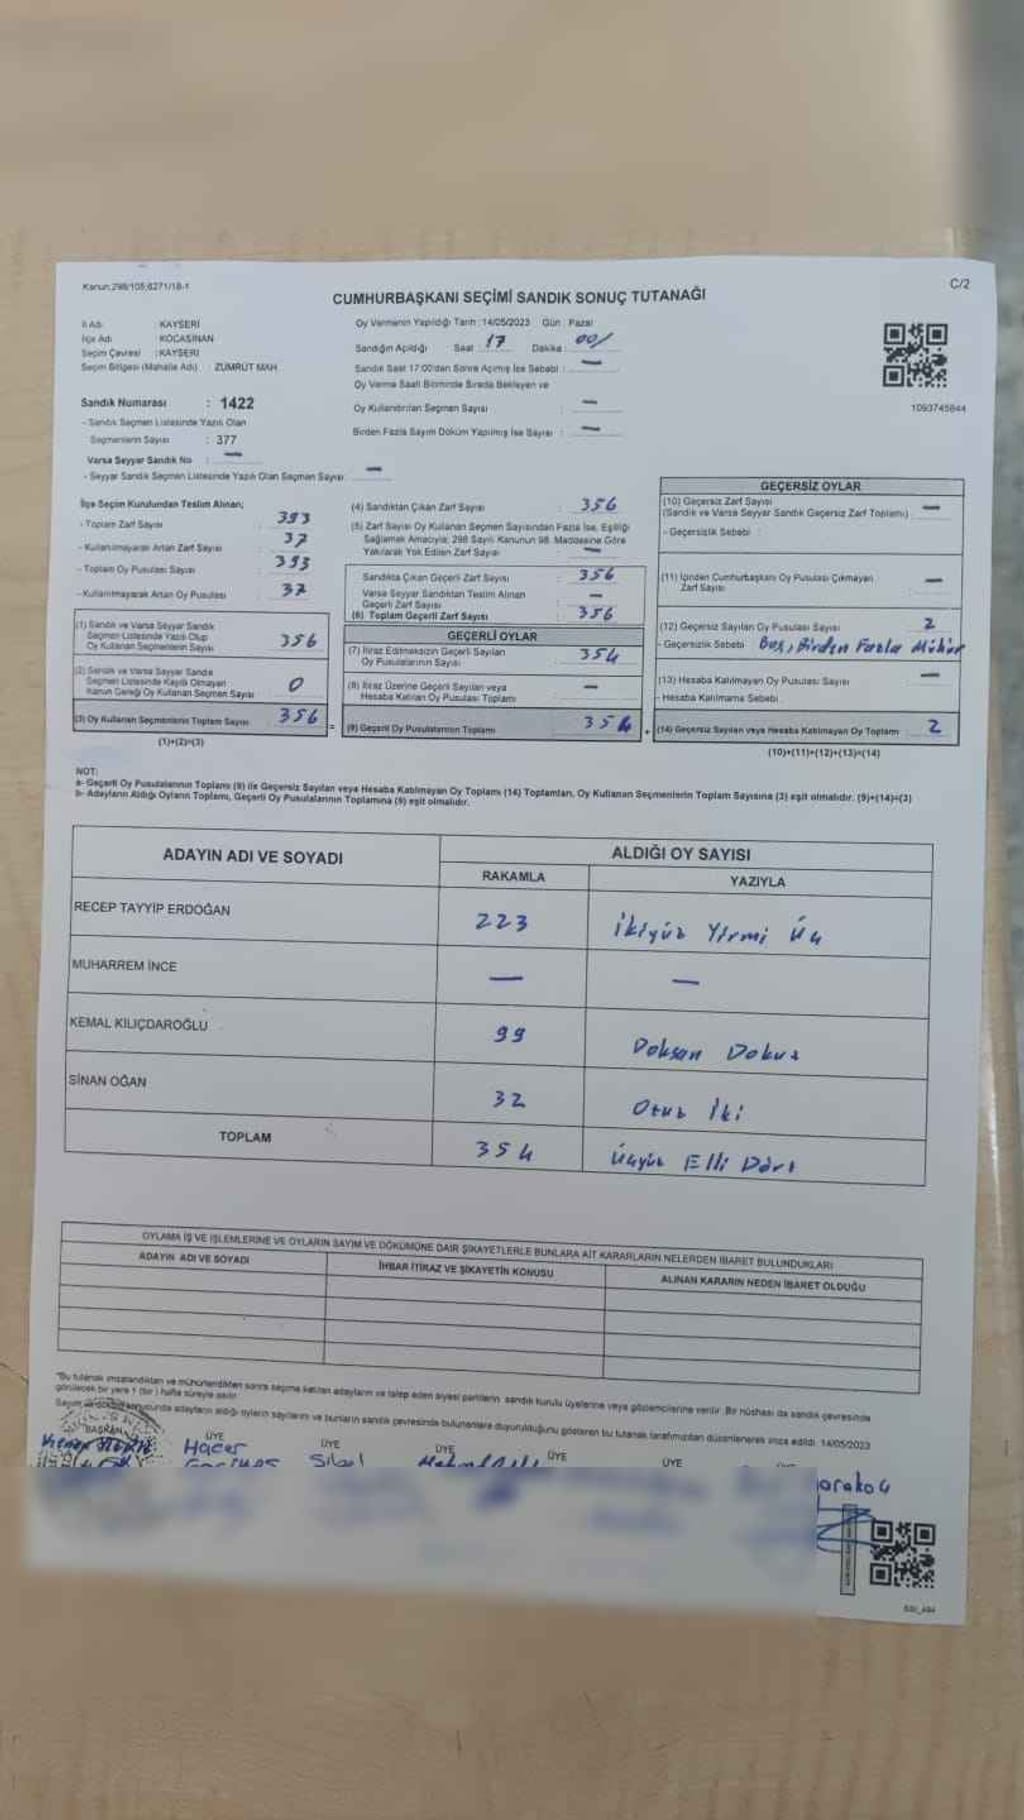 Kanun:298/105;6271/18-1
C/2
CUMHURBAŞKANI SEÇİMİ SANDIK SONUÇ TUTANAĞI
İl Adı : KAYSERİ
İlçe Adı : KOCASİNAN
Seçim Çevresi : KAYSERİ
Seçim Bölgesi (Mahalle Adı) : ZÜMRÜT MAH.
Oy Vermenin Yapıldığı Tarih :14/05/2023 Gün : Pazar
Sandığın Açıldığı Saat : 17 Dakika : 00/
Sandık Saat 17:00'dan Sonra Açılmış İse Sebebi : —
Oy Verme Saati Bitiminde Sırada Bekleyen ve
Oy Kullandırılan Seçmen Sayısı : —
Birden Fazla Sayım Döküm Yapılmış İse Sayısı : —
1093745844
Sandık Numarası : 1422
- Sandık Seçmen Listesinde Yazılı Olan
Seçmenlerin Sayısı : 377
Varsa Seyyar Sandık No : —
- Seyyar Sandık Seçmen Listesinde Yazılı Olan Seçmen Sayısı : —
İlçe Seçim Kurulundan Teslim Alınan;
- Toplam Zarf Sayısı : 393
- Kullanılmayarak Artan Zarf Sayısı : 37
- Toplam Oy Pusulası Sayısı : 393
- Kullanılmayarak Artan Oy Pusulası : 37
(1) Sandık ve Varsa Seyyar Sandık
Seçmen Listesinde Yazılı Olup
Oy Kullanan Seçmenlerin Sayısı 356
(2) Sandık ve Varsa Seyyar Sandık
Seçmen Listesinde Kayıtlı Olmayan
Kanun Gereği Oy Kullanan Seçmen Sayısı 0
(3) Oy Kullanan Seçmenlerin Toplam Sayısı 356 =
(1)+(2)=(3)
(4) Sandıktan Çıkan Zarf Sayısı : 356
(5) Zarf Sayısı Oy Kullanan Seçmen Sayısından Fazla İse, Eşitliği
Sağlamak Amacıyla; 298 Sayılı Kanunun 98. Maddesine Göre
Yakılarak Yok Edilen Zarf Sayısı : —
Sandıkta Çıkan Geçerli Zarf Sayısı 356
Varsa Seyyar Sandıktan Teslim Alınan
Geçerli Zarf Sayısı —
(6) Toplam Geçerli Zarf Sayısı 356
GEÇERLİ OYLAR
(7) İtiraz Edilmeksizin Geçerli Sayılan
Oy Pusulalarının Sayısı 354
(8) İtiraz Üzerine Geçerli Sayılan veya
Hesaba Katılan Oy Pusulası Toplamı —
(9) Geçerli Oy Pusulalarının Toplamı 354 +
GEÇERSİZ OYLAR
(10) Geçersiz Zarf Sayısı
(Sandık ve Varsa Seyyar Sandık Geçersiz Zarf Toplamı) —
- Geçersizlik Sebebi :
(11) İçinden Cumhurbaşkanı Oy Pusulası Çıkmayan
Zarf Sayısı —
(12) Geçersiz Sayılan Oy Pusulası Sayısı 2
- Geçersizlik Sebebi : Boş, Birden Fazla Mühür
(13) Hesaba Katılmayan Oy Pusulası Sayısı —
- Hesaba Katılmama Sebebi :
(14) Geçersiz Sayılan veya Hesaba Katılmayan Oy Toplamı 2
(10)+(11)+(12)+(13)=(14)
NOT:
a- Geçerli Oy Pusulalarının Toplamı (9) ile Geçersiz Sayılan veya Hesaba Katılmayan Oy Toplamı (14) Toplamları, Oy Kullanan Seçmenlerin Toplam Sayısına (3) eşit olmalıdır. (9)+(14)=(3)
b- Adayların Aldığı Oyların Toplamı, Geçerli Oy Pusulalarının Toplamına (9) eşit olmalıdır.
ADAYIN ADI VE SOYADI
ALDIĞI OY SAYISI
RAKAMLA YAZIYLA
RECEP TAYYİP ERDOĞAN 223 İkiyüz Yirmi Üç
MUHARREM İNCE — —
KEMAL KILIÇDAROĞLU 99 Doksan Dokuz
SİNAN OĞAN 32 Otuz İki
TOPLAM 354 Üçyüz Elli Dört
OYLAMA İŞ VE İŞLEMLERİNE VE OYLARIN SAYIM VE DÖKÜMÜNE DAİR ŞİKAYETLERLE BUNLARA AİT KARARLARIN NELERDEN İBARET BULUNDUKLARI
ADAYIN ADI VE SOYADI İHBAR İTİRAZ VE ŞİKAYETİN KONUSU ALINAN KARARIN NEDEN İBARET OLDUĞU
"Bu tutanak imzalandıktan ve mühürlendikten sonra seçime katılan adayların ve talep eden siyasi partilerin sandık kurulu üyelerine veya gözlemcilerine verilir. Bir nüshası da sandık çevresinde
görülecek bir yere 1 (bir) hafta süreyle asılır.
Sayım ve döküm sonucunda adayların aldığı oyların sayılarını ve bunların sandık çevresinde bulunanlara duyurulduğunu gösteren bu tutanak tarafımızdan düzenlenerek imza edildi. 14/05/2023
BAŞKAN ÜYE ÜYE ÜYE ÜYE ÜYE
Hacer Sibel